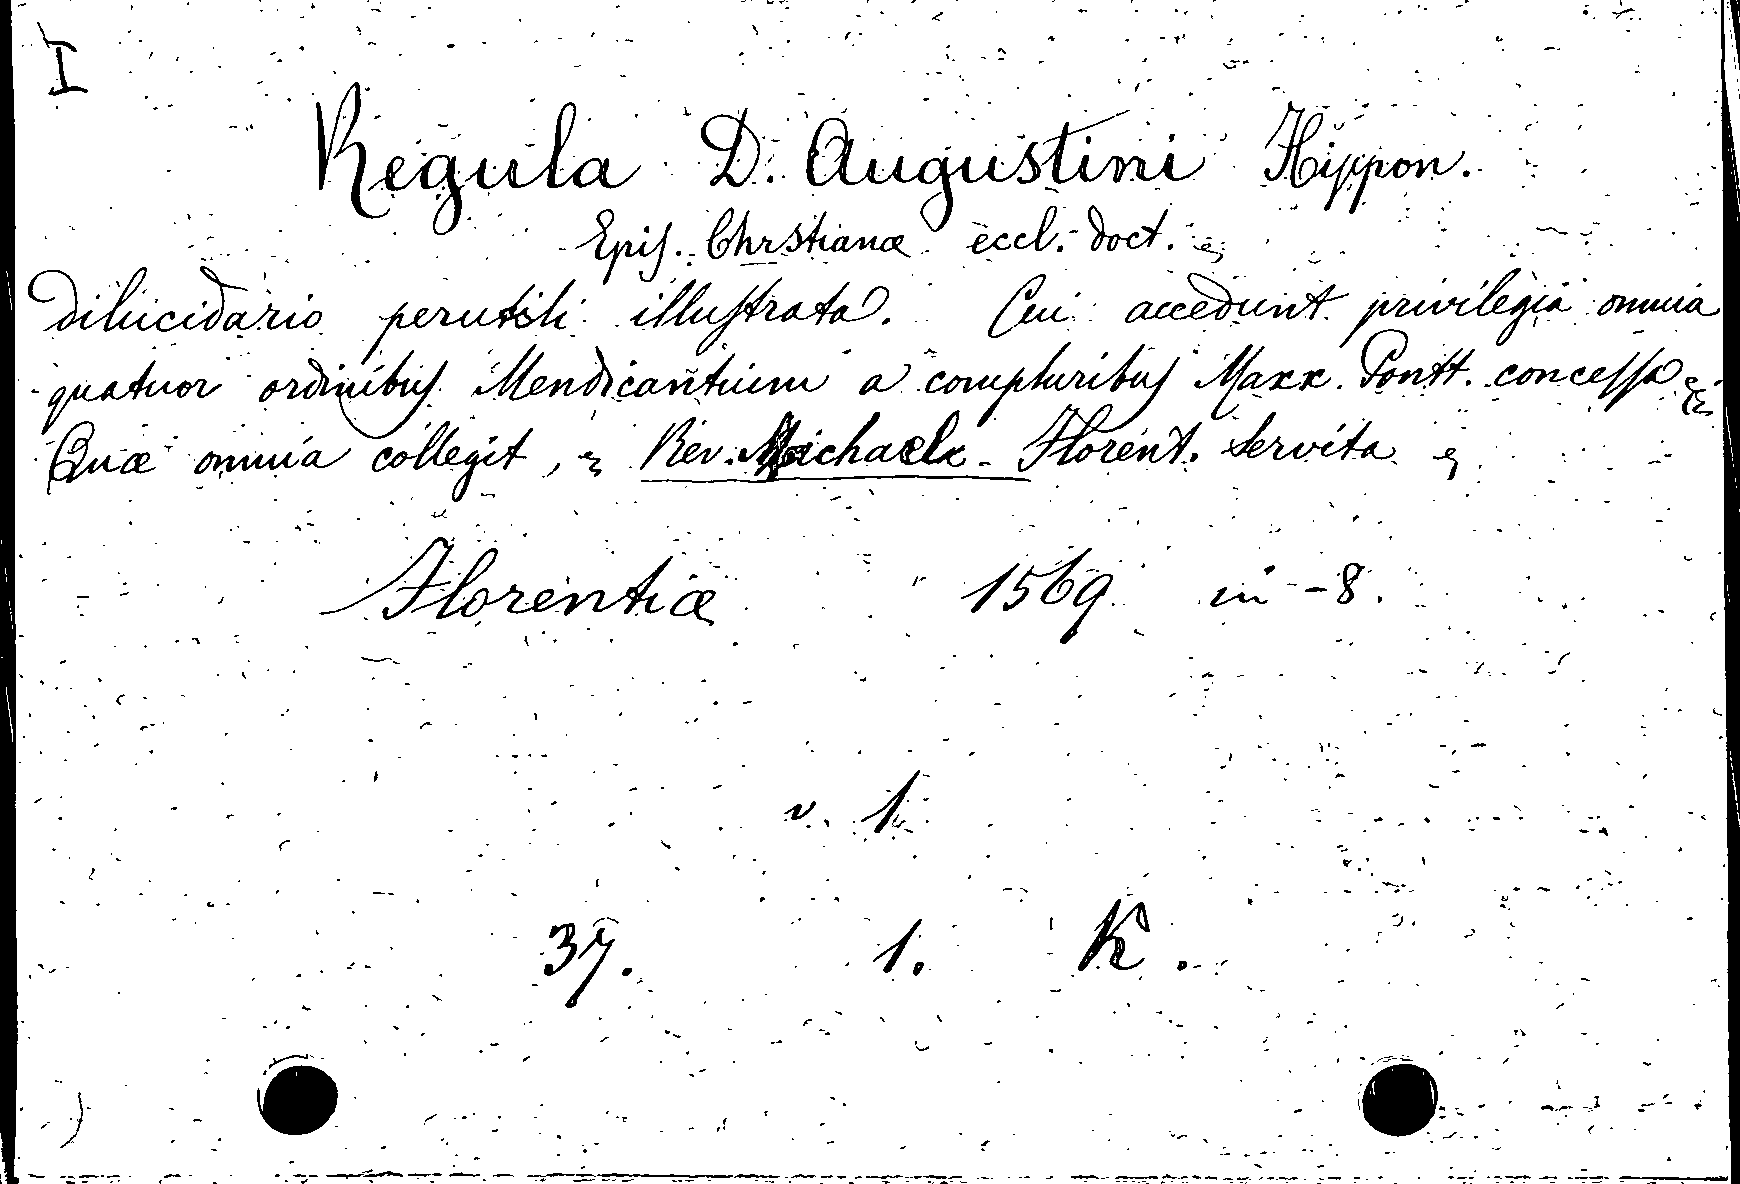 I
Regula D. Augustini Hippon.
Epis. Chrstianæ eccl. doct.
dilucidario perutili illustrata. Cui accedunt privilegia omnia
quatuor ordinibus Mendicantium a compluribus Maxx. Pontt. concessa
Quæ omnia collegit, Rev. Michaele Florent. Servita
Florentiæ 1569 in-8.
v. 1
37. 1. K.